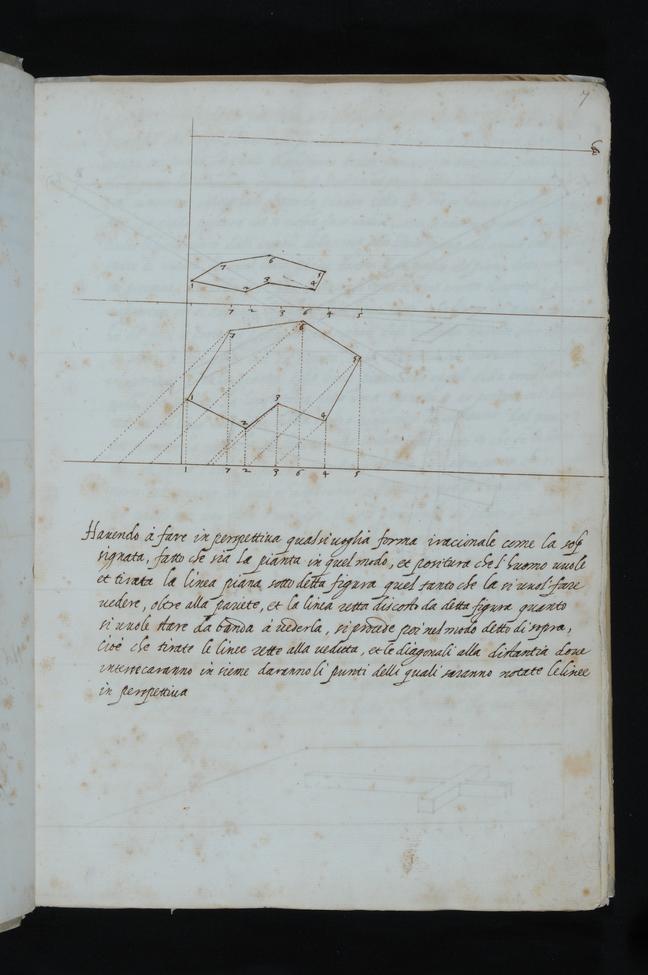 7
6
7
1
2
3
4
7 2 3 6 4 5
7
6
5
1
3
2
4
1 7 2 3 6 4 5
Hauendo à fare in perspettiua qualsiuoglia forma iracionale come la
signata, fatto che sia la pianta in quel modo, et positura che l'huomo uuole
et tirata la linea piana sotto detta figura quel tanto che la si uuol fare
uedere, oltre alla parete, et la linea retta discosto da detta figura quanto
si uuole stare da banda à uederla, si procede poi nel modo detto di sopra,
cioè che tirate le linee rette alla ueduta, et le diagonali alla distantia doue
intersecaranno in sieme daranno li punti delli quali saranno notate le linee
in perspettiua